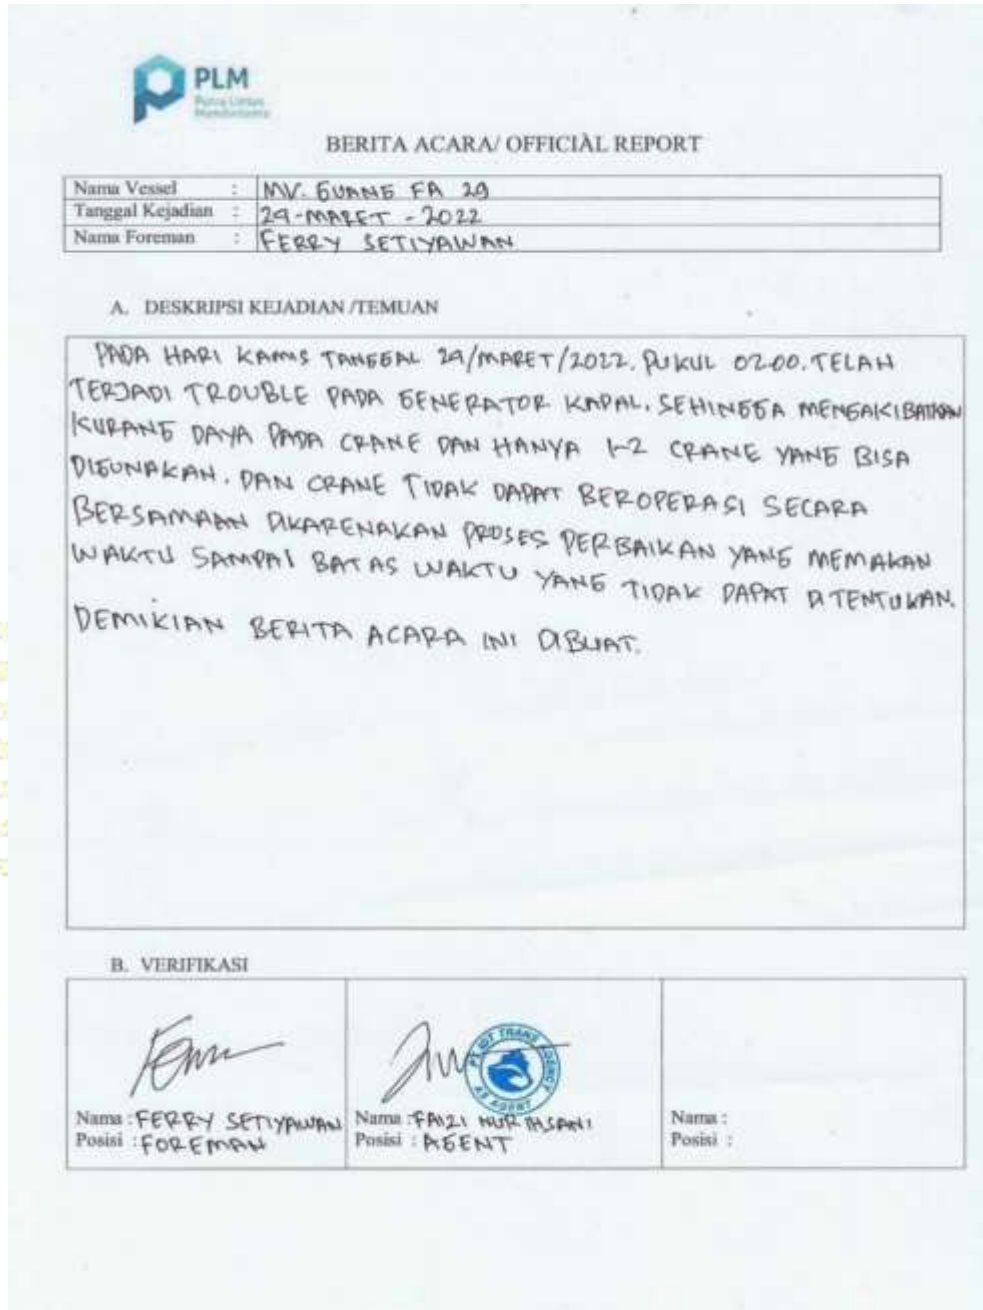 PLM
Putra Lintas
Mandiritama
BERITA ACARA/ OFFICIAL REPORT
Nama Vessel : MV. GUANG FA 29
Tanggal Kejadian : 24-MARET-2022
Nama Foreman : FERRY SETIYAWAN
A. DESKRIPSI KEJADIAN /TEMUAN
PADA HARI KAMIS TANGGAL 24/MARET/2022. PUKUL 02.00. TELAH
TERJADI TROUBLE PADA GENERATOR KAPAL. SEHINGGA MENGAKIBATKAN
KURANG DAYA PADA CRANE DAN HANYA 1-2 CRANE YANG BISA
DIGUNAKAN. DAN CRANE TIDAK DAPAT BEROPERASI SECARA
BERSAMAAN DIKARENAKAN PROSES PERBAIKAN YANG MEMAKAN
WAKTU SAMPAI BATAS WAKTU YANG TIDAK DAPAT DITENTUKAN.
DEMIKIAN BERITA ACARA INI DIBUAT.
B. VERIFIKASI
Nama : FERRY SETIYAWAN
Posisi : FOREMAN
PT. IDT TRANS AGENCY
AS AGENT
Nama : FAIZI NUR IHSANI
Posisi : AGENT
Nama :
Posisi :